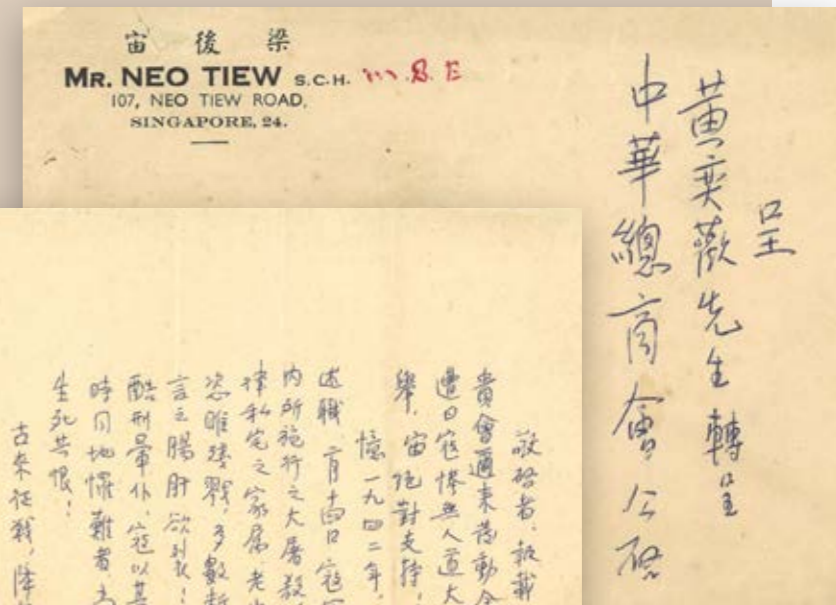 宙後梁
MR. NEO TIEW S.C.H. M.B.E
107, NEO TIEW ROAD,
SINGAPORE, 24.
呈
黃奕歡先生轉呈
中華總商會公啓
敬啓者,報載
貴會邇來發動全
遭日寇慘無人道大
舉,宙絕對支持,
憶一九四二年,
述職,二月十四日寇軍
內所施行之大屠殺,
律私宅之家屬,老少
恣睢殘戮,多數
言之腸肝欲裂!
酷刑暈仆,寇以其
時同地罹難者
生死共恨!
古來征戰,降